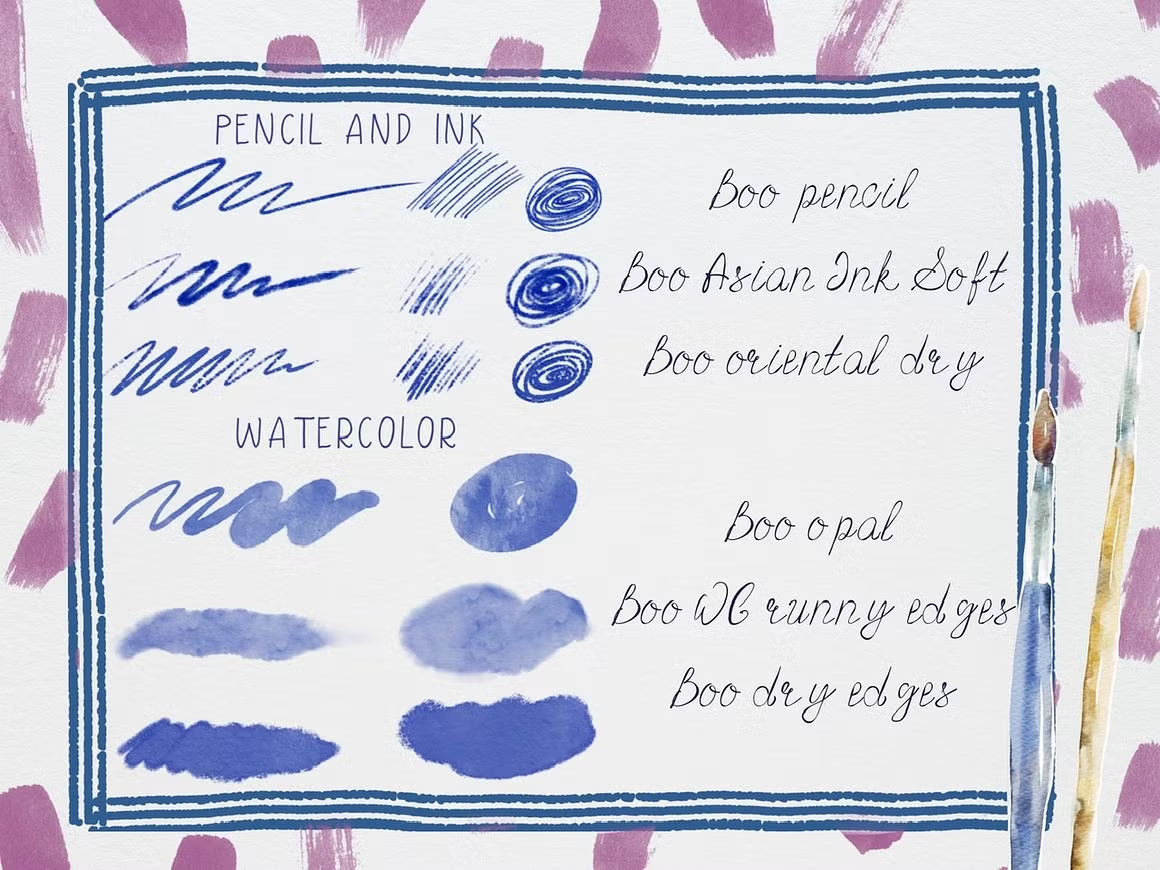 PENCIL AND INK
Boo pencil
Boo Asian Ink Soft
Boo oriental dry
WATERCOLOR
Boo opal
Boo WC runny edges
Boo dry edges